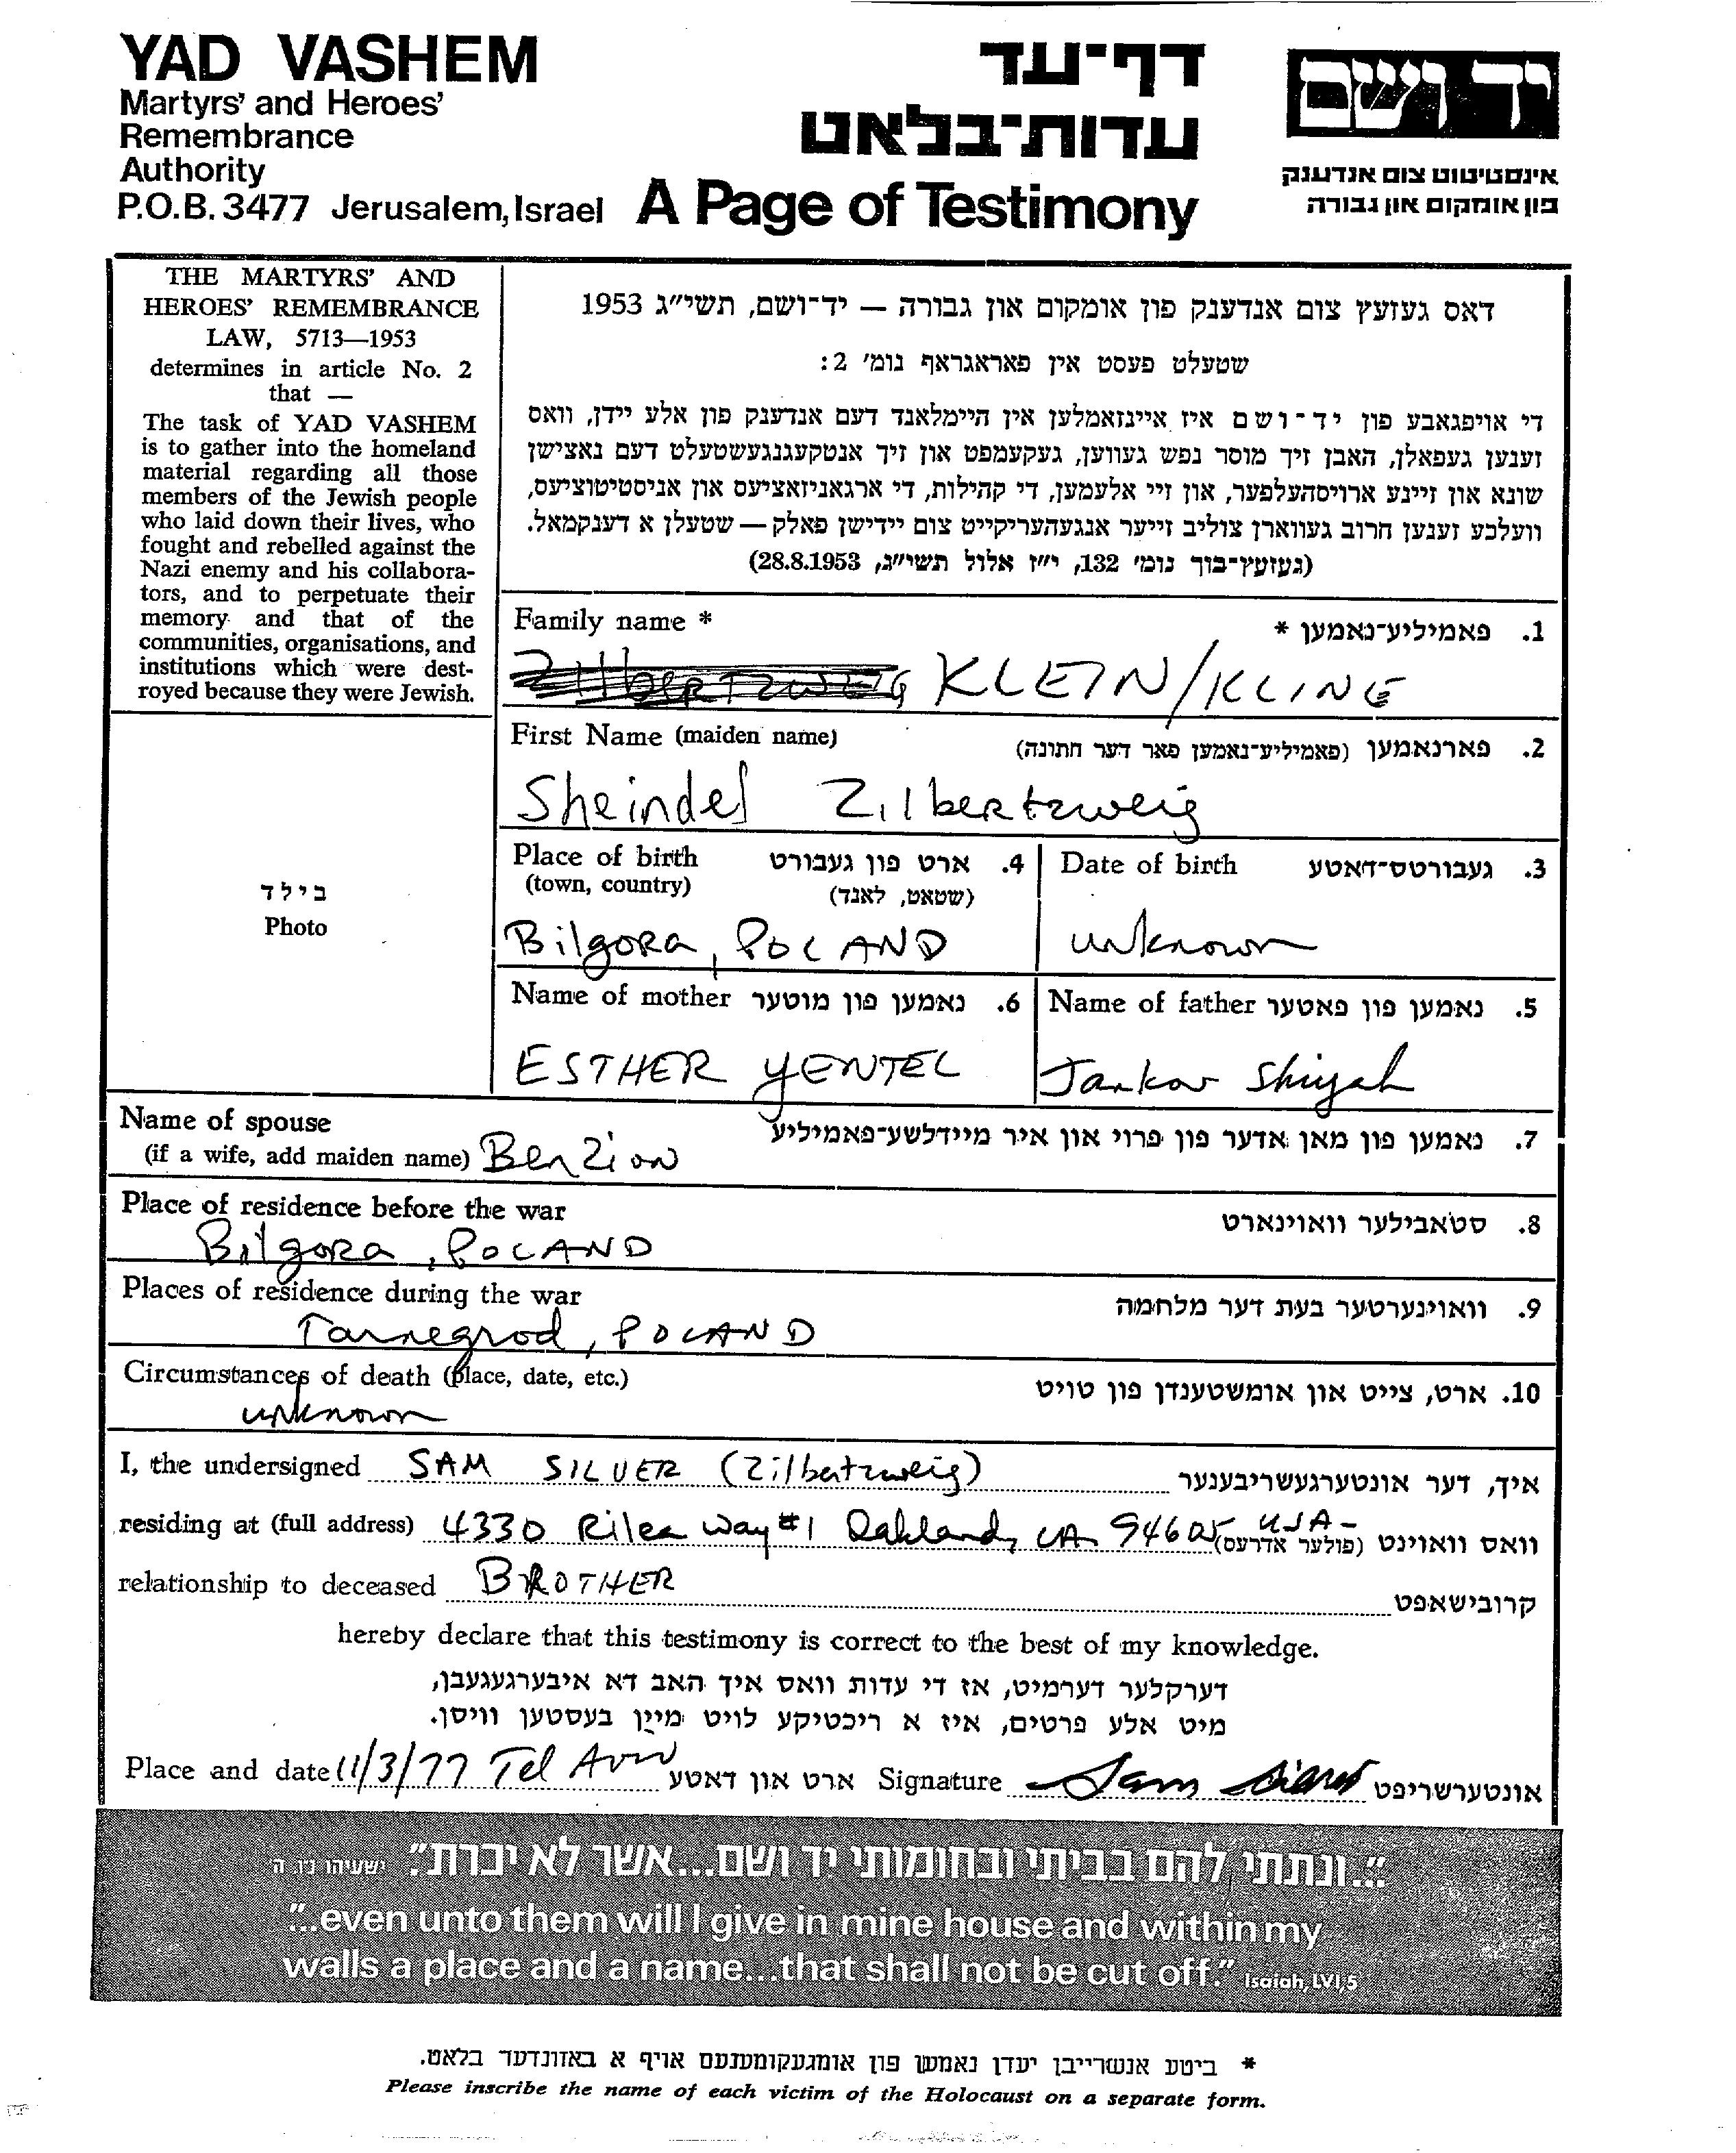 YAD VASHEM
Martyrs' and Heroes'
Remembrance
Authority
P.O.B. 3477 Jerusalem, Israel
דף־עד
עדות־בלאט
A Page of Testimony
יד ושם
אינסטיטוט צום אנדענק
פון אומקום און גבורה
THE MARTYRS' AND
HEROES' REMEMBRANCE
LAW, 5713—1953
determines in article No. 2
that —
The task of YAD VASHEM
is to gather into the homeland
material regarding all those
members of the Jewish people
who laid down their lives, who
fought and rebelled against the
Nazi enemy and his collabora-
tors, and to perpetuate their
memory and that of the
communities, organisations, and
institutions which were dest-
royed because they were Jewish.
דאס געזעץ צום אנדענק פון אומקום און גבורה — יד־ושם, תשי״ג 1953
שטעלט פעסט אין פאראגראף נומ׳ 2:
די אויפגאבע פון יד־ושם איז איינזאמלען אין היימלאנד דעם אנדענק פון אלע יידן, וואס
זענען געפאלן, האבן זיך מוסר נפש געווען, געקעמפט און זיך אנטקעגנגעשטעלט דעם נאצישן
שונא און זיינע ארויסהעלפער, און זיי אלעמען, די קהילות, די ארגאניזאציעס און אניסטיטוציעס,
וועלכע זענען חרוב געווארן צוליב זייער אנגעהעריקייט צום יידישן פאלק — שטעלן א דענקמאל.
(געזעץ־בוך נומ׳ 132, י״ז אלול תשי״ג, 28.8.1953)
בילד
Photo
Family name * 1. פאמיליע־נאמען *
Zilbertzweig KLEIN/KLINE
First Name (maiden name) 2. פארנאמען (פאמיליע־נאמען פאר דער חתונה)
Sheindel Zilbertzweig
Place of birth 4. ארט פון געבורט
(town, country) (שטאט, לאנד)
Bilgora, POLAND
Date of birth 3. געבורטס־דאטע
unknown
Name of mother 6. נאמען פון מוטער
ESTHER YENTEL
Name of father 5. נאמען פון פאטער
Jankov Shiyah
Name of spouse 7. נאמען פון מאן אדער פון פרוי און איר מיידלשע־פאמיליע
(if a wife, add maiden name) Ben Zion
Place of residence before the war 8. סטאבילער וואוינארט
Bilgora, POLAND
Places of residence during the war 9. וואוינערטער בעת דער מלחמה
Tarnegrod, POLAND
Circumstances of death (place, date, etc.) 10. ארט, צייט און אומשטענדן פון טויט
unknown
I, the undersigned SAM SILVER (Zilbertzweig) איך, דער אונטערגעשריבענער
residing at (full address) 4330 Rilea way #1 Oakland, CA 94605 USA - וואס וואוינט (פולער אדרעס)
relationship to deceased BROTHER קרובישאפט
hereby declare that this testimony is correct to the best of my knowledge.
דערקלער דערמיט, אז די עדות וואס איך האב דא איבערגעגעבן,
מיט אלע פרטים, איז א ריכטיקע לויט מיין בעסטען וויסן.
Place and date 11/3/77 Tel Aviv ארט און דאטע Signature Sam Silver אונטערשריפט
"...ונתתי להם בביתי ובחומותי יד ושם...אשר לא יכרת." ישעיהו נו, ה
"...even unto them will I give in mine house and within my
walls a place and a name...that shall not be cut off." Isaiah, LVI, 5
* ביטע אנשרייבן יעדן נאמען פון אומגעקומענעם אויף א באזונדער בלאט.
Please inscribe the name of each victim of the Holocaust on a separate form.